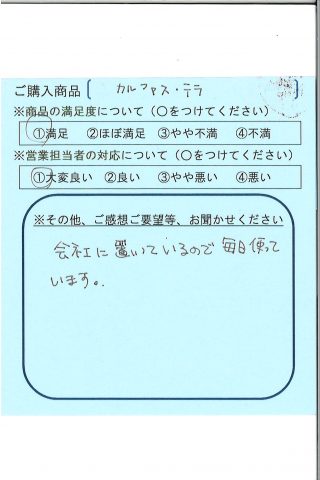 ご購入商品 〔 カルファス・テラ 〕
※商品の満足度について（○をつけてください）
①満足 ②ほぼ満足 ③やや不満 ④不満
※営業担当者の対応について（○をつけてください）
①大変良い ②良い ③やや悪い ④悪い
※その他、ご感想ご要望等、お聞かせください
会社に置いているので毎日使って
います。